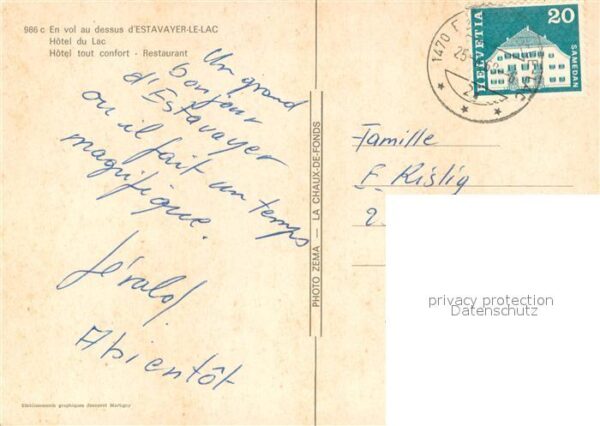 986 c En vol au dessus d'ESTAVAYER-LE-LAC
Hôtel du Lac
Hôtel tout confort - Restaurant
Un grand
bonjour
d'Estavayer
ou il fait un temps
magnifique.
Gérald.
A bientôt
Etablissements graphiques Jeanneret Martigny
PHOTO ZEMA — LA CHAUX-DE-FONDS
1470
HELVETIA
20
SAMEDAN
Famille
F. Rislig
2
privacy protection
Datenschutz